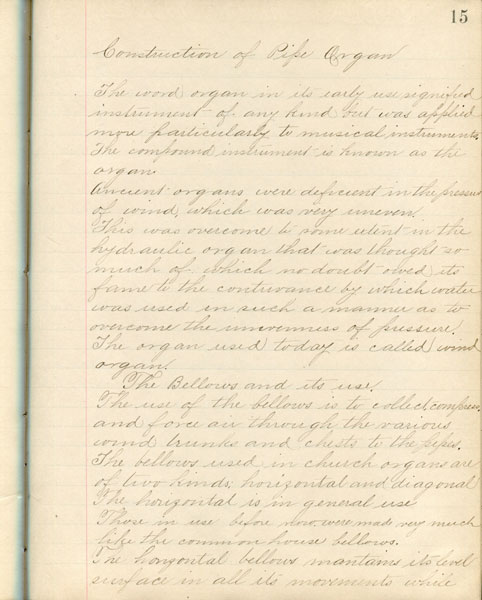 15
Construction of Pipe Organ
The word organ in its early use signified
instrument of any kind but was applied
more particularly to musical instruments.
The compound instrument is known as the
organ.
Ancient organs were deficient in the pressure
of wind, which was very uneven.
This was overcome to some extent in the
hydraulic organ that was thought so
much of which no doubt owed its
fame to the contrivance by which water
was used in such a manner as to
overcome the unevenness of pressure.
The organ used today is called wind
organ.
The Bellows and its use.
The use of the bellows is to collect, compress,
and force air through the various
wind trunks and chests to the pipes.
The bellows used in church organs are
of two kinds; horizontal and diagonal
The horizontal is in general use
Those in use before now were made very much
like the common house bellows.
The horizontal bellows mantains its level
surface in all its movements while